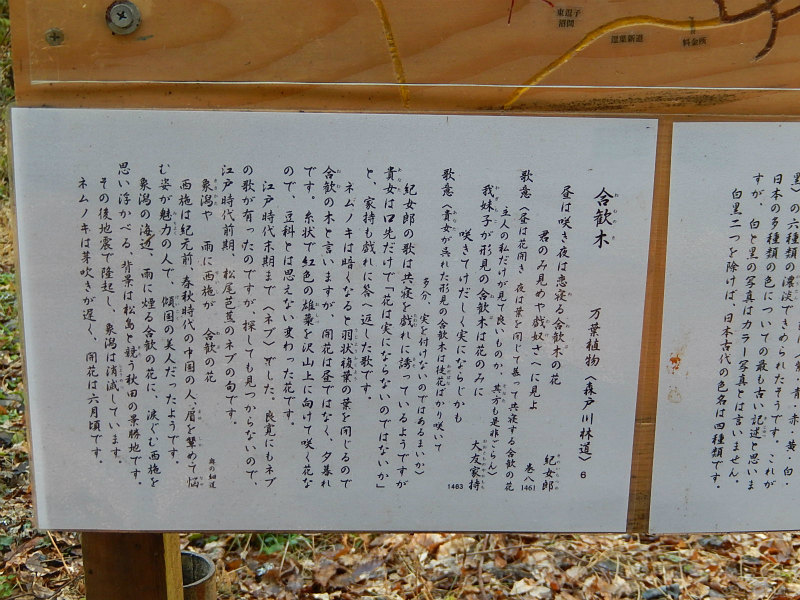 東逗子
沼間
逗葉新道
料金所
合歓木
万葉植物〈森戸川林道〉 6
昼は咲き夜は恋寝る合歓木の花
君のみ見めや戯奴さへに見よ
紀女郎
巻八1461
歌意〈昼は花開き 夜は葉を閉じて慕って共寝する合歓の花
主人の私だけが見て良いものか、其方も是非ごらん〉
我妹子が形見の合歓木は花のみに
咲きてけだしく実にならじかも
大友家持
1463
歌意〈貴女が呉れた形見の合歓木は徒花ばかり咲いて
多分、実を付けないのではあるまいか〉
紀女郎の歌は共寝を戯れに誘っているようですが
貴女は口先だけで「花は実にならないのではないか」
と、家持も戯れに答へ返した歌です。
ネムノキは暗くなると羽状複葉の葉を閉じるので
合歓の木と言いますが、開花は昼ではなく、夕暮れ
です。糸状で紅色の雄蘂を沢山上に向けて咲く花な
ので、豆科とは思えない変わった花です。
江戸時代末期まで〈ネブ〉でした。良寛にもネブ
の歌が有ったのですが、探しても見つからないので、
江戸時代前期、松尾芭蕉のネブの句です。
象潟や 雨に西施が 合歓の花
奥の細道
西施は紀元前、春秋時代の中国の人、眉を顰めて悩
む姿が魅力の人で、傾国の美人だったようです。
象潟の海辺、雨に煙る合歓の花に、涙ぐむ西施を
思い浮かべる。背景は松島と競う秋田の景勝地です。
その後地震で隆起し、象潟は消滅しています。
ネムノキは芽吹きが遅く、開花は六月頃です。
の六種類の濃淡できめられたそうです。これが
日本の多種類の色についての最も古い記述と思いま
すが、白と黒の写真はカラー写真とは言いません。
白黒二つを除けば、日本古代の色名は四種類です。